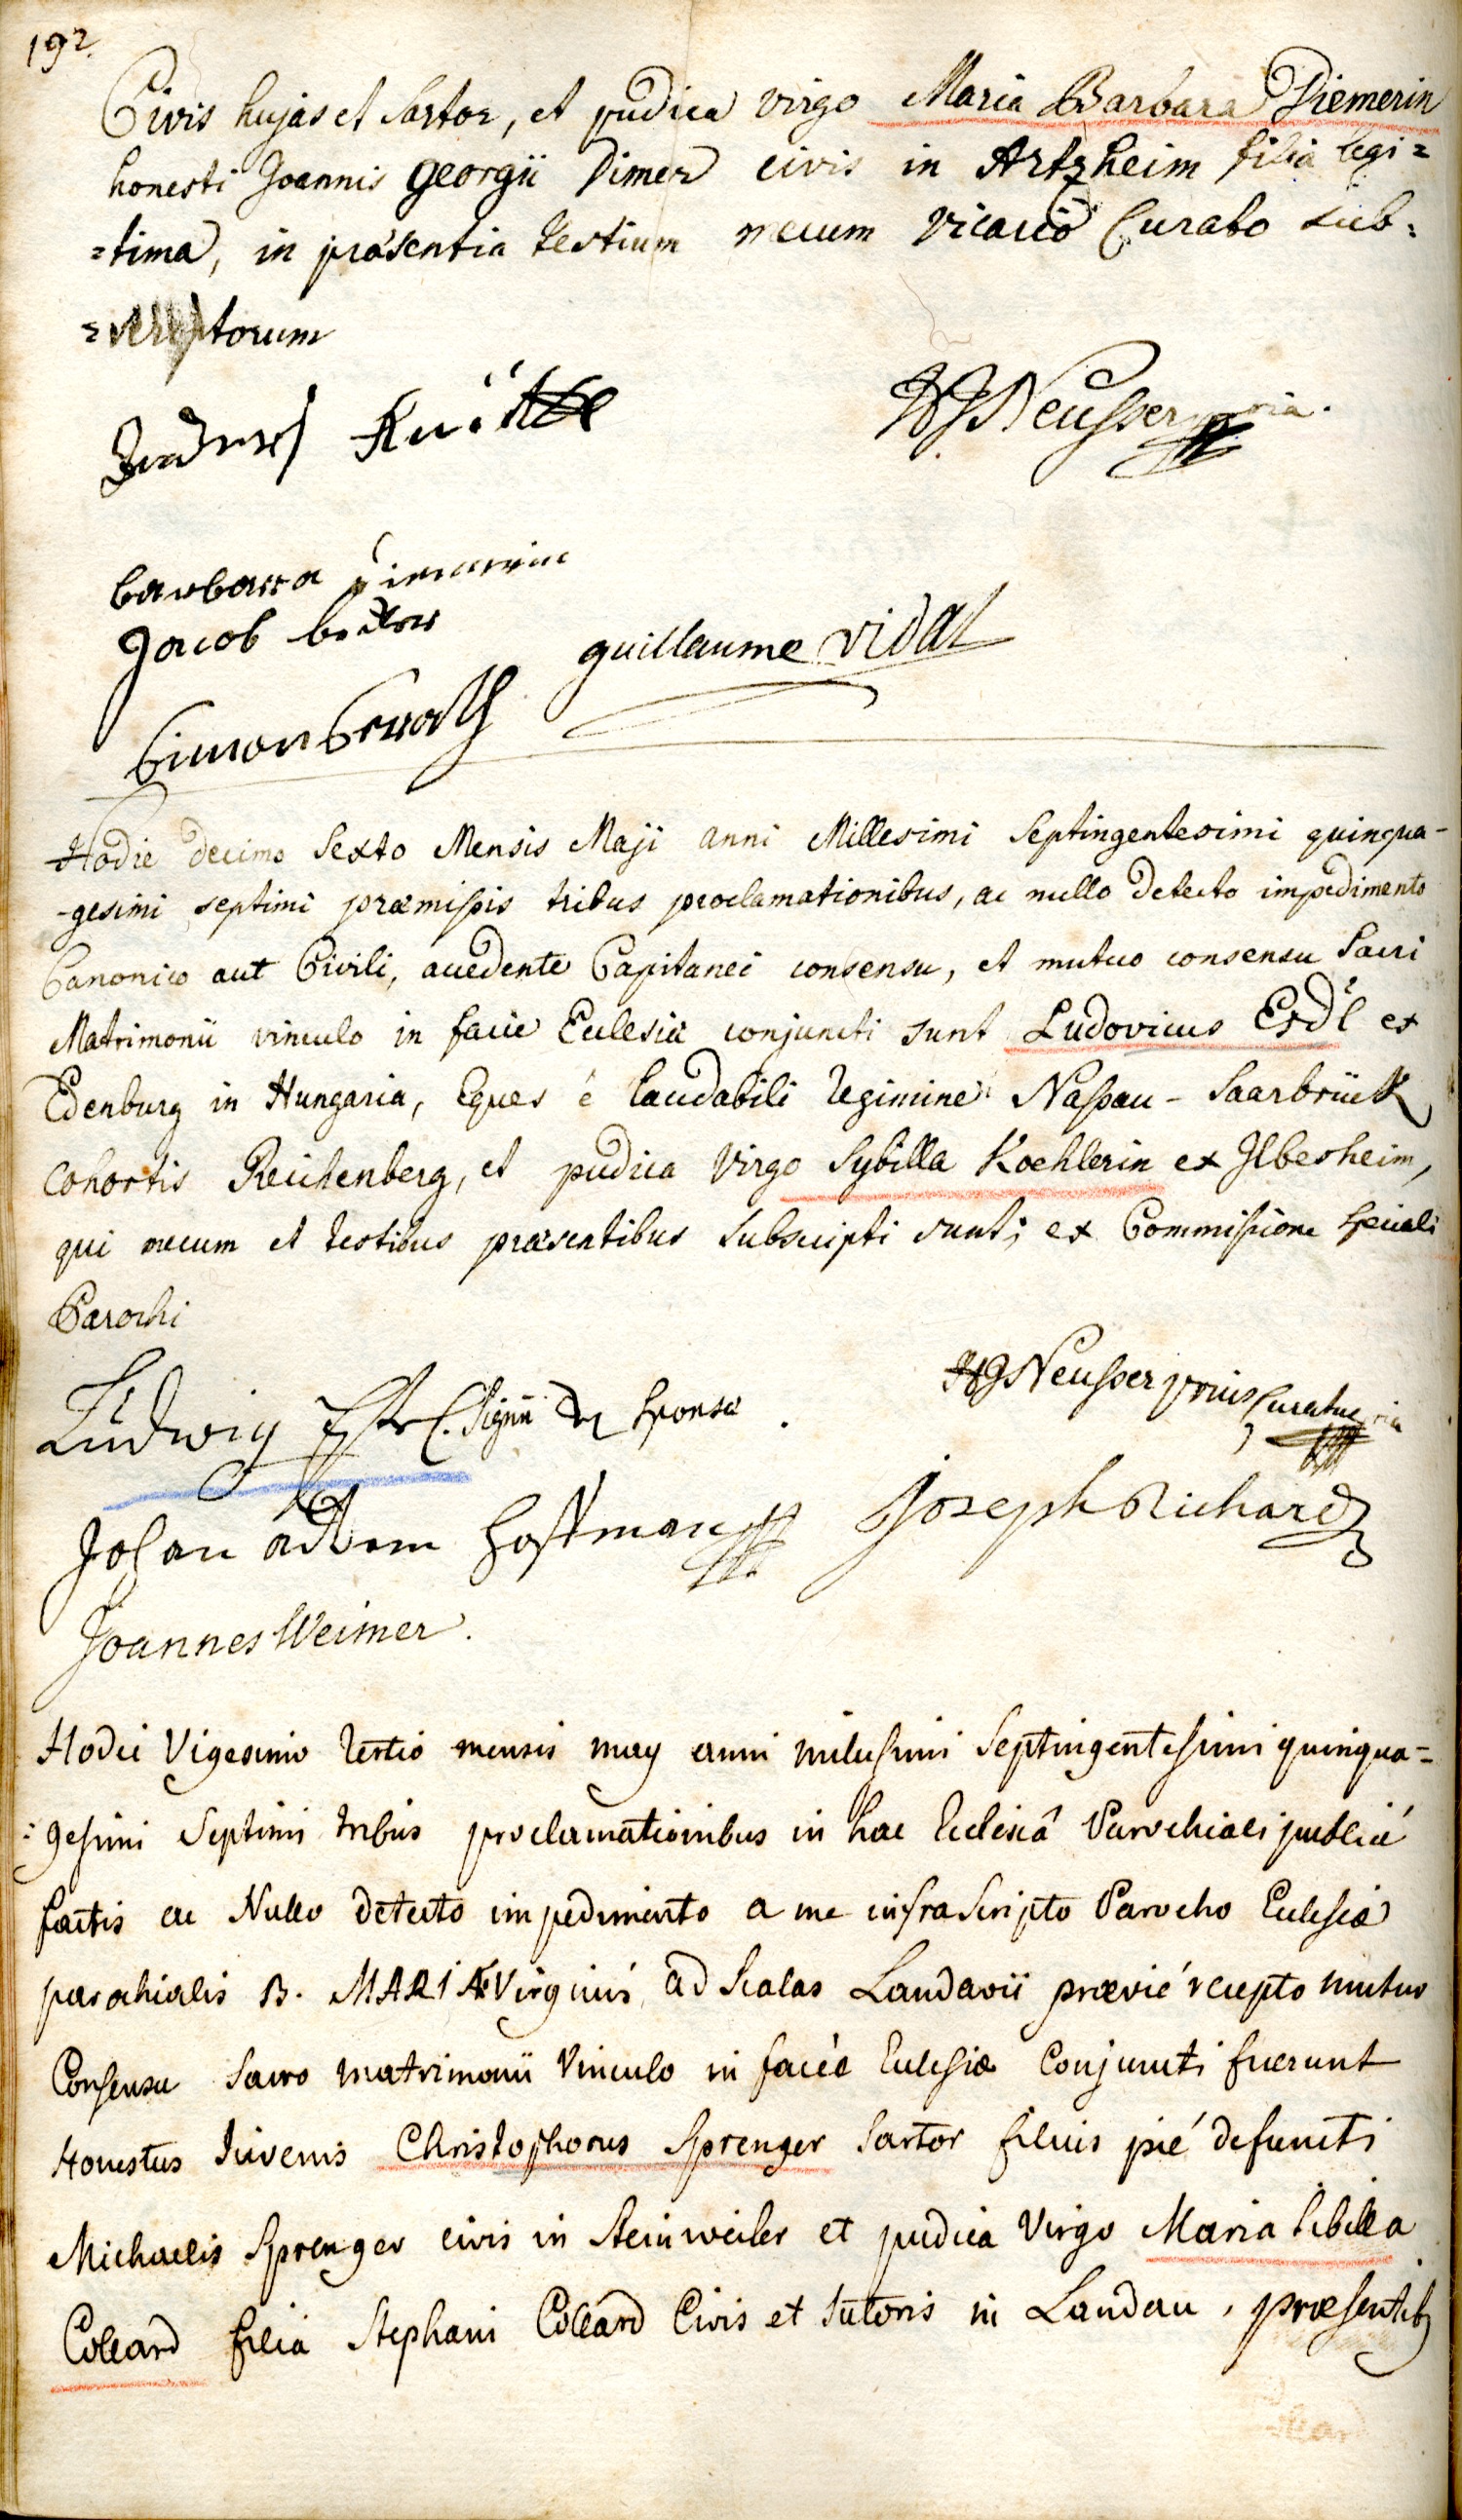 192.
Civis hujas et Sartor, et pudica virgo Maria Barbara Diemerin
honesti Joannis Georgii Dimer civis in Artzheim filia legi=
=tima, in præsentia testium mecum vicario Curato sub=
=scriptorum
HJNeusser mpria.
barbara
Jacob
guillaume vidal
Simon
Hodie decimo Sexto Mensis Maji anni Millesimi Septingentesimi quinqua-
-gesimi septimi præmissis tribus proclamationibus, ac nullo detecto impedimento
Canonico aut Civili, accedente Capitanei consensu, et mutuo consensu Sacri
Matrimonii vinculo in facie Ecclesiæ conjuncti sunt Ludovicus Erdl ex
Edenburg in Hungaria, Eques é laudabili regimine Nassau-Saarbrück
cohortis Reichenberg, et pudica Virgo Sybilla Koehlerin ex Ilbesheim,
qui mecum et testibus præsentibus subscripti sunt; ex Commissione speciali
Parochi
HJNeusser Curatus
Ludwig Signū Sponsæ.
Johan adam hoffman
Joseph Richard
Joannes Weimer.
Hodie Vigesimo tertio mensis may anni millesimi Septingentesimi quinqua=
=gesimi Septimi tribus proclamationibus in hac Ecclesiâ Parochiali publicé
factis ac Nullo detecto impedimento a me infra Scripto Parocho Ecclesiæ
parochialis B. MARIÆ Virginis ad Scalas Landavii prævié recepto mutuo
Consensu Sacro matrimonii Vinculo in facie Ecclesiæ conjuncti fuerunt
Honestus Juvenis Christophorus Sprenger Sartor filius pié defuncti
Michaelis Sprenger civis in Steinweiler et pudica Virgo Maria Sibilla
Collard filia Stephani Collard Civis et Sutoris in Landau, præsentib9